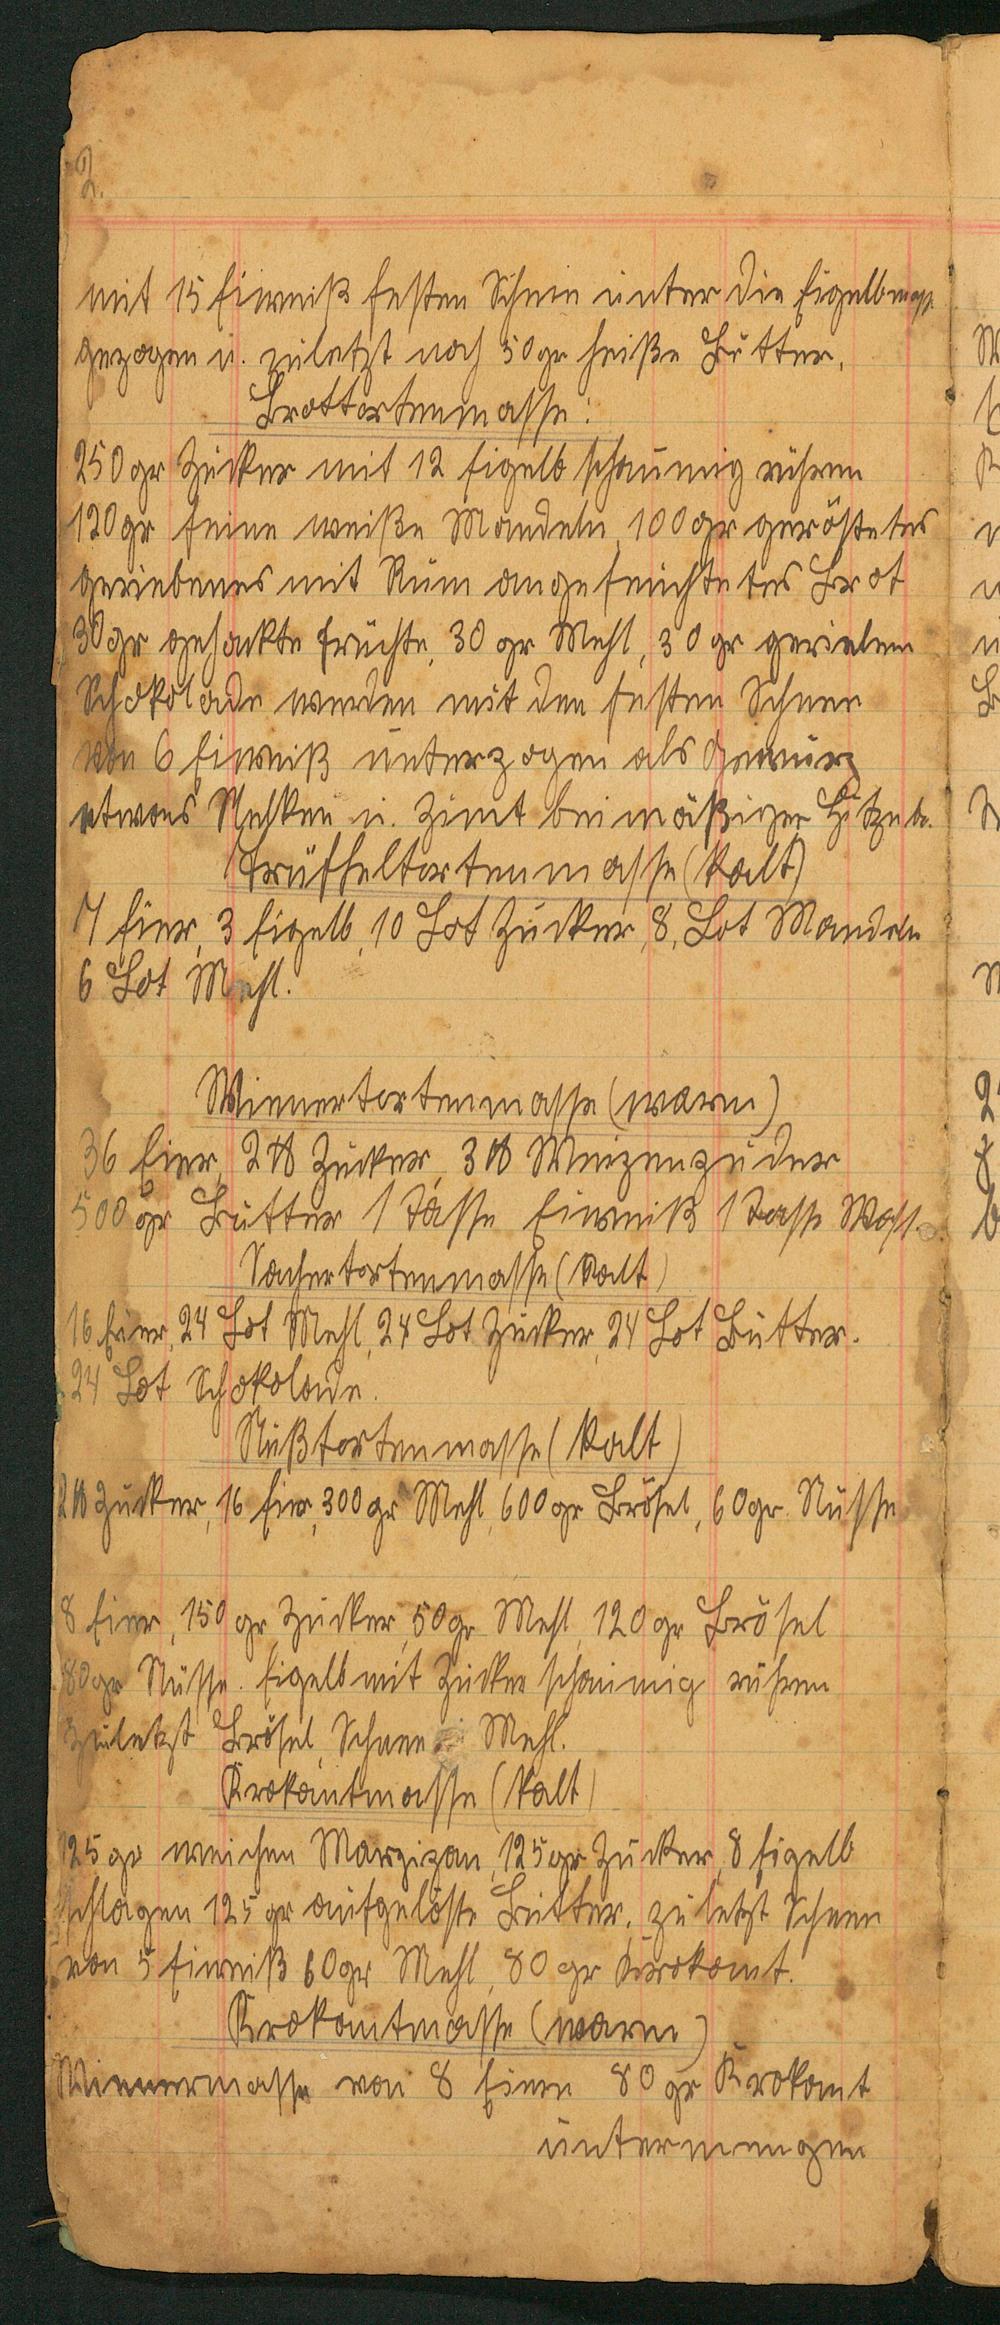 2.
mit 15 Eiweiß festen Schnee unter die Eigelbmass.
gezogen u. zuletzt noch 50 gr heiße Butter.
Brottortenmasse:
250 gr Zucker mit 12 Eigelb schaumig rühren
120 gr feine weiße Mandeln, 100 gr geröstetes
geriebenes mit Rum angefeuchtetes Brot
30 gr gehackte Früchte, 30 gr Mehl, 30 gr
Schokolade werden mit den festen Schnee
von 6 Eiweiß unterzogen als Gewürz
etwas Nelken u. Zimt bei mäßiger Hitze b.
Trüffeltortenmasse (kalt)
7 Eier, 3 Eigelb, 10 Lot Zucker, 8, Lot Mandeln
6 Lot Mehl.
Wienertortenmasse (warm)
36 Eier, 2 ℔ Zucker, 3 ℔ Weizenpuder
500 gr Butter 1 Tasse Eiweiß 1 Tasse Wass.
Sachertortenmasse (kalt)
16 Eier, 24 Lot Mehl, 24 Lot Zucker, 24 Lot Butter.
24 Lot Schokolade.
Nußtortenmasse (kalt)
2 ℔ Zucker, 16 Eier, 300 gr Mehl, 600 gr Brösel, 60 gr. Nüsse
8 Eier, 150 gr Zucker, 50 gr Mehl, 120 gr Brösel
80 gr Nüsse. Eigelb mit Zucker schaumig rühren
zuletzt Brösel, Schnee Mehl.
Krokantmasse (kalt)
125 gr weichen Marzipan, 125 gr Zucker, 8 Eigelb
schlagen 125 gr aufgelöste Butter, zuletzt Schnee
von 5 Eiweiß 60 gr Mehl, 80 gr Krokant.
Krokantmasse (warm)
Wienermasse von 8 Eiern 80 gr Krokant
untermengen